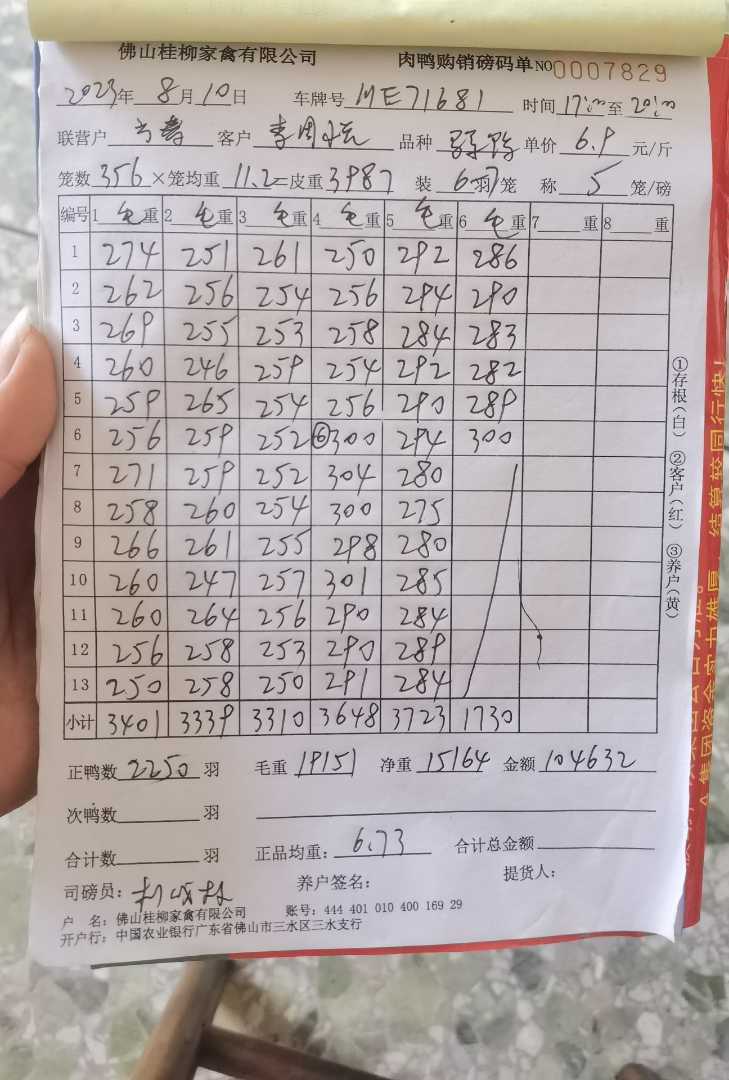 佛山桂柳家禽有限公司 肉鸭购销磅码单 NO0007829
2023年 8月10日 车牌号 ME71681 时间 17:00至 20:00
联营户 客户 李周 品种 单价 6.9 元/斤
笼数 356×笼均重 11.2=皮重 3987 装 6.7羽/笼 称 5 笼/磅
编号 1 毛重 2 毛重 3 毛重 4 毛重 5 毛重 6 毛重 7 重 8 重
1 274 251 261 250 292 286
2 262 256 254 256 294 290
3 269 255 253 258 284 283
4 260 246 259 254 292 282
5 259 265 254 256 290 289
6 256 259 252 ⑥300 294 300
7 271 259 252 304 280
8 258 260 254 300 275
9 266 261 255 298 280
10 260 247 257 301 285
11 260 264 256 290 284
12 256 258 253 290 289
13 250 258 250 291 284
小计 3401 3339 3310 3648 3723 1730
正鸭数 2250 羽 毛重 19151 净重 15164 金额 104632
次鸭数 羽
合计数 羽 正品均重: 6.73 合计总金额
司磅员: 养户签名: 提货人:
户 名: 佛山桂柳家禽有限公司 账号: 444 401 010 400 169 29
开户行: 中国农业银行广东省佛山市三水区三水支行
①存根(白) ②客户(红) ③养户(黄)
结算较同行快!